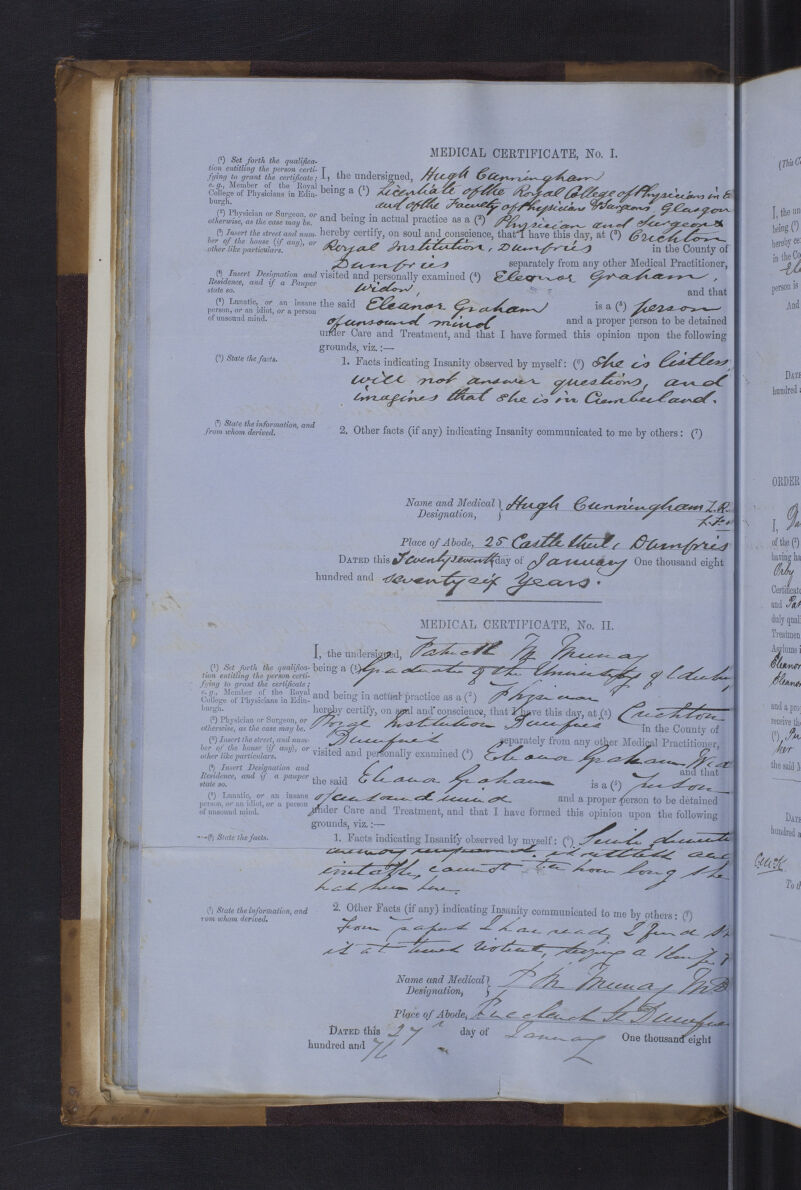 MEDICAL CERTIFICATE, No. I.
(¹) Set forth the qualifica-
tion entitling the person certi-
fying to grant the certificate;
e.g., Member of the Royal
College of Physicians in Edin-
burgh.
I, the undersigned, Hugh Cunningham
being a (¹) Licentiate of the Royal College of Physicians in E
and of the Faculty of Physicians & Surgeons Glasgow
(²) Physician or Surgeon, or
otherwise, as the case may be.
and being in actual practice as a (²) Physician and Surgeon
(³) Insert the street and num-
ber of the house (if any), or
other like particulars.
hereby certify, on soul and conscience, that I have this day, at (³) Crichton
Royal Institution, Dumfries in the County of
Dumfries separately from any other Medical Practitioner,
(⁴) Insert Designation and
Residence, and if a Pauper
state so.
visited and personally examined (⁴) Eleanor Graham,
Widow, and that
(⁵) Lunatic, or an insane
person, or an idiot, or a person
of unsound mind.
the said Eleanor Graham is a (⁵) person
of unsound mind and a proper person to be detained
under Care and Treatment, and that I have formed this opinion upon the following
grounds, viz.:—
(⁶) State the facts.
1. Facts indicating Insanity observed by myself: (⁶) She is listless
will not answer questions, and
imagines that she is in Cumberland.
(⁷) State the information, and
from whom derived.
2. Other facts (if any) indicating Insanity communicated to me by others: (⁷)
Name and Medical
Designation,
Hugh Cunningham L.R.
Place of Abode, 25 Castle Street, Dumfries
DATED this Twentyseventh day of January One thousand eight
hundred and seventy six years.
MEDICAL CERTIFICATE, No. II.
I, the undersigned, Patrick M Murray
(¹) Set forth the qualifica-
tion entitling the person certi-
fying to grant the certificate;
e.g., Member of the Royal
College of Physicians in Edin-
burgh.
being a (¹) Graduate of the University of Edinbu
and being in actual practice as a (²) Physician
(²) Physician or Surgeon, or
otherwise, as the case may be.
hereby certify, on soul and conscience, that I have this day, at (³) Crichton
Royal Institution Dumfries in the County of
(³) Insert the street, and num-
ber of the house (if any), or
other like particulars.
Dumfries separately from any other Medical Practitioner,
visited and personally examined (⁴) Eleanor Graham
(⁴) Insert Designation and
Residence, and if a pauper
state so.
and that
the said Eleanor Graham is a (⁵) Person
(⁵) Lunatic, or an insane
person, or an idiot, or a person
of unsound mind.
of unsound mind and a proper person to be detained
under Care and Treatment, and that I have formed this opinion upon the following
grounds, viz.:—
State the facts.
1. Facts indicating Insanity observed by myself: (⁶) Senile dementi
memory is restless and
irritable, cannot tell how long she
has been here.
(⁷) State the information, and
rom whom derived.
2. Other Facts (if any) indicating Insanity communicated to me by others: (⁷)
From papers I have read, I find she
is at times violent, a knife
Name and Medical
Designation,
P M Murray MD
Place of Abode, Buccleuch St Dumfries
DATED this 27 day of January One thousand eight
hundred and 76
(This C
I, the un
being (¹)
hereby ce
in the Co
person is
And
DATE
hundred a
ORDER
I,
of the (²)
having ha
Certificate
and Pat
duly qual
Treatmen
Asylums i
Eleanor
Eleano
and a pro
receive th
her
the said
DATE
hundred a
To th